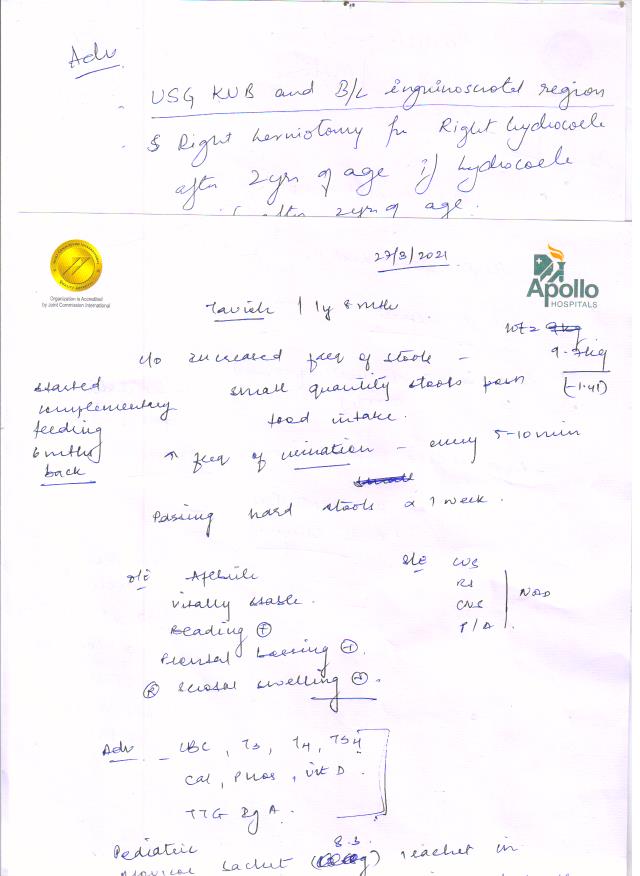 Adv
USG KUB and B/L inguinoscrotal region
Right herniotomy for Right hydrocoele
after 2yrs of age if hydrocoele
after 2yrs of age.
Organization is Accredited
by Joint Commission International
27/3/2021
Apollo
HOSPITALS
1y 8 mth
wt = 9kg
9.7kg
(-1.41)
c/o increased freq of stools -
small quantity stools post
food intake.
started
complementary
feeding
6 mths
back
↑ freq of urination - every 5-10 min
Passing hard stools x 1 week.
o/e Afebrile
vitally stable.
Beading +
Frontal bossing +.
(R) scrotal swelling +.
S/E CVS
RS
CNS
P/A
NAD
Adv - CBC, T3, T4, TSH
Cal, Phos, Vit D.
TTG IgA.
Pediatric
sachet